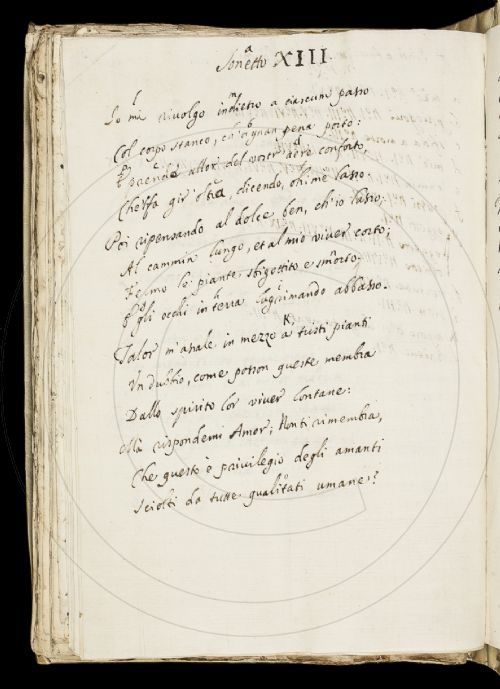 Sonetto XIII.
Io mi rivolgo indietro a ciascun passo
Col corpo stanco, ch' a gran pena porto:
E prendo allor del vostr' aere conforto,
Che'l fa gir oltra, dicendo, ohime lasso.
Poi ripensando al dolce ben, ch'io lasso;
Al cammin lungo, et al mio viver corto;
Fermo le piante, sbigottito e smorto;
E gli occhi in terra lagrimando abbasso.
Talor m'assale in mezzo a tristi pianti
Un dubbio, come posson queste membra
Dallo spirito lor viver lontane:
Ma rispondemi Amor; Non ti rimembra,
Che questo è privilegio degli amanti
Sciolti da tutte qualitati umane?